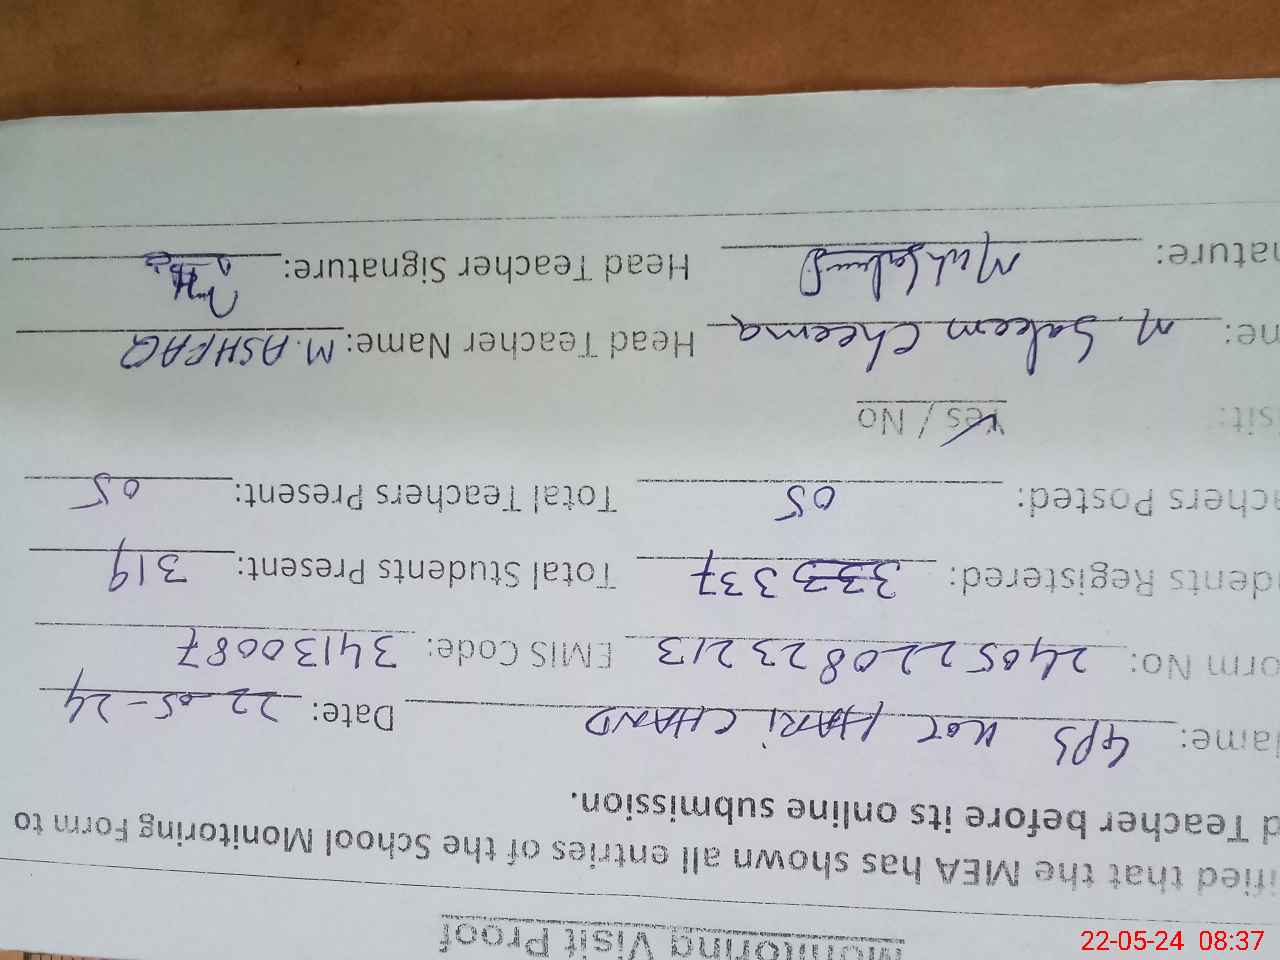 Monitoring Visit Proof
ified that the MEA has shown all entries of the School Monitoring Form to
d Teacher before its online submission.
ame: GPS Kot HARi CHAND Date: 22-05-24
orm No: 2405220823213 EMIS Code: 34130087
dents Registered: 333 337 Total Students Present: 319
chers Posted: 05 Total Teachers Present: 05
sit: Yes / No
ne: M. Saleem Cheema Head Teacher Name: M. ASHFAQ
nature: Head Teacher Signature:
22-05-24 08:37